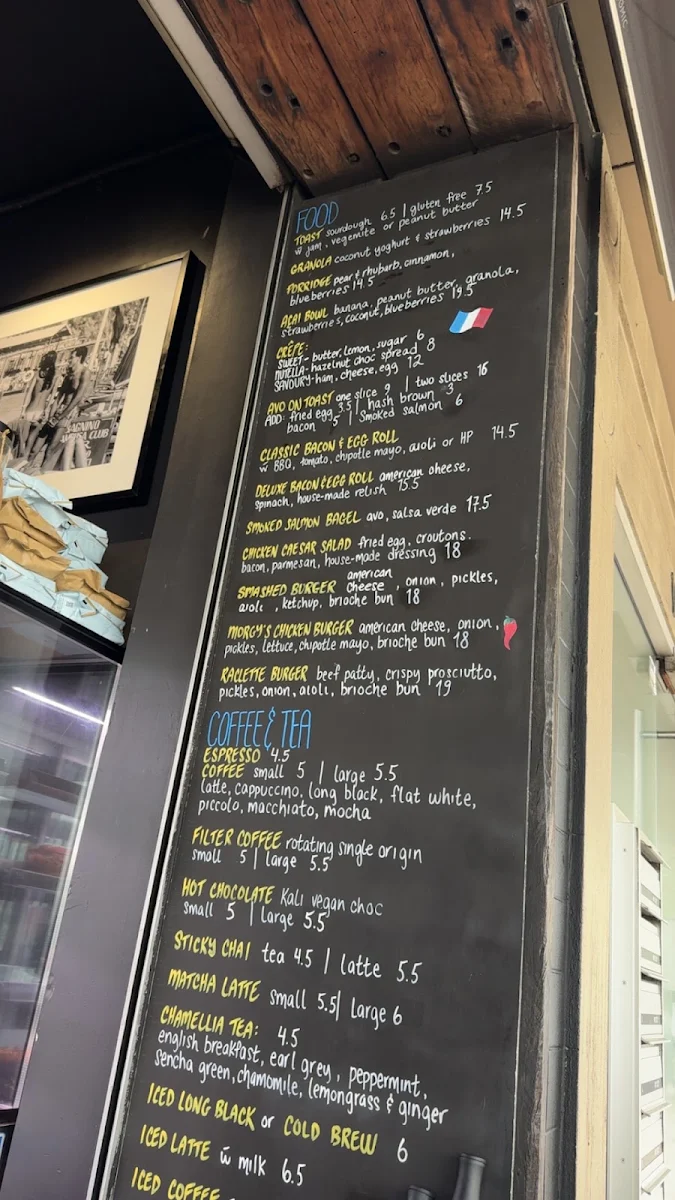 FOOD
TOAST sourdough 6.5 | gluten free 7.5
w̄ jam, vegemite or peanut butter
GRANOLA coconut yoghurt & strawberries 14.5
PORRIDGE pear & rhubarb, cinnamon,
blueberries 14.5
AÇAI BOWL banana, peanut butter, granola,
strawberries, coconut, blueberries 19.5
CRÊPE:
SWEET - butter, lemon, sugar 6
NUTELLA - hazelnut choc spread 8
SAVOURY - ham, cheese, egg 12
AVO ON TOAST one slice 9 | two slices 16
ADD: fried egg 3.5 | hash brown 3
bacon 5 | Smoked salmon 6
CLASSIC BACON & EGG ROLL
w̄ BBQ, tomato, chipotle mayo, aioli or HP 14.5
DELUXE BACON & EGG ROLL american cheese,
spinach, house-made relish 15.5
SMOKED SALMON BAGEL avo, salsa verde 17.5
CHICKEN CAESAR SALAD fried egg, croutons.
bacon, parmesan, house-made dressing 18
SMASHED BURGER american cheese, onion, pickles,
aioli, ketchup, brioche bun 18
MORGY'S CHICKEN BURGER american cheese, onion,
pickles, lettuce, chipotle mayo, brioche bun 18
RACLETTE BURGER beef patty, crispy prosciutto,
pickles, onion, aioli, brioche bun 19
COFFEE & TEA
ESPRESSO 4.5
COFFEE small 5 | large 5.5
latte, cappuccino, long black, flat white,
piccolo, macchiato, mocha
FILTER COFFEE rotating single origin
small 5 | large 5.5
HOT CHOCOLATE Kali vegan choc
small 5 | large 5.5
STICKY CHAI tea 4.5 | latte 5.5
MATCHA LATTE small 5.5 | Large 6
CHAMELLIA TEA: 4.5
english breakfast, earl grey, peppermint,
sencha green, chamomile, lemongrass & ginger
ICED LONG BLACK or COLD BREW 6
ICED LATTE w̄ milk 6.5
ICED COFFEE
CLUB